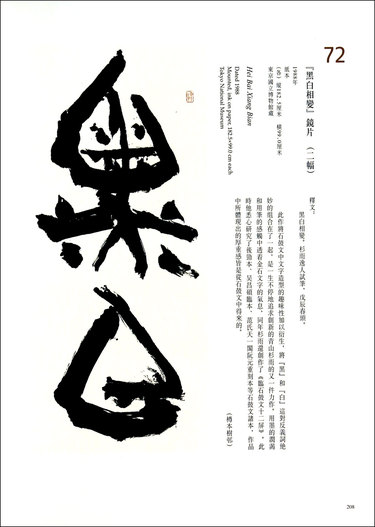 72
『黑白相變』鏡片 （二幅）
1988年
紙本
(各) 縱182.5厘米 橫99.0厘米
東京國立博物館藏
Hei Bai Xiang Bian
Dated 1988
Mounted, ink on paper, 182.5×99.0 cm each
Tokyo National Museum
釋文：
黑白相變。杉雨逸人試筆，戊辰春頭。
此作將石鼓文中文字造型的趣味性加以衍生，將『黑』和『白』這對反義詞絕
妙的組合在了一起，是一生不停地追求創新的青山杉雨的又一件力作。用墨的潤渴
和用筆的感觸中透着金石文字的氣息。同年杉雨還創作了《臨石鼓文十二屏》，此
時他悉心研究了後勁本、吳昌碩臨本、范氏天一閣阮元重刻本等石鼓文諸本，作品
中所體現出的厚重感皆是從石鼓文中得來的。
（樽本樹邨）
黑白
208